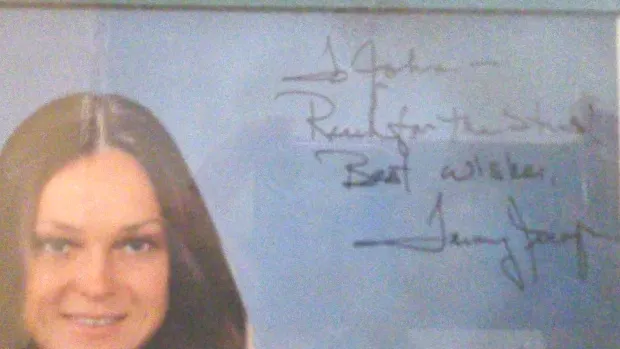 To John —
Reach for the Stars!
Best wishes,